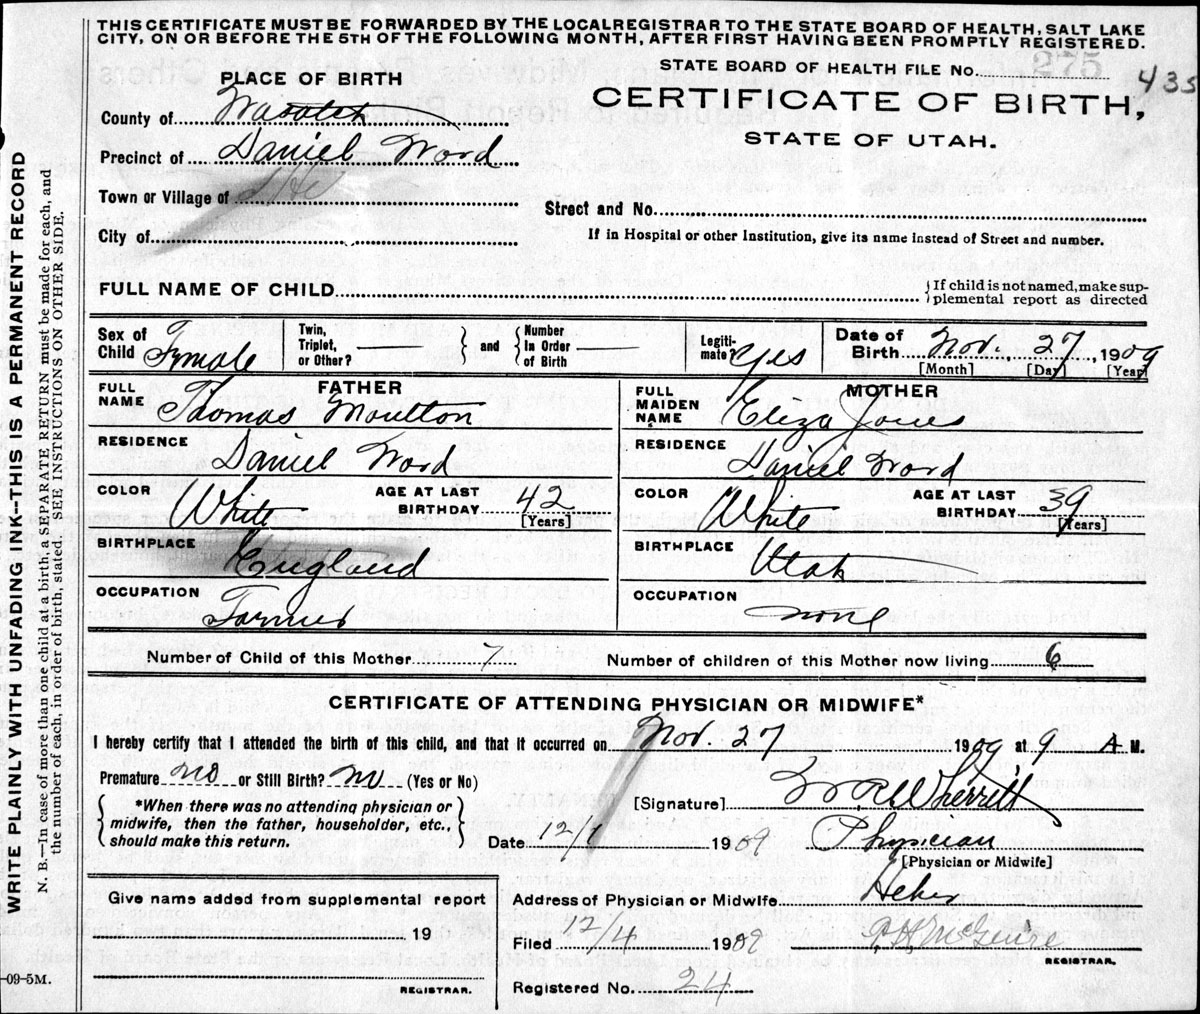 THIS CERTIFICATE MUST BE FORWARDED BY THE LOCAL REGISTRAR TO THE STATE BOARD OF HEALTH, SALT LAKE
CITY, ON OR BEFORE THE 5TH OF THE FOLLOWING MONTH, AFTER FIRST HAVING BEEN PROMPTLY REGISTERED.
PLACE OF BIRTH
STATE BOARD OF HEALTH FILE No. 275 435
County of Wasatch
CERTIFICATE OF BIRTH,
STATE OF UTAH.
Precinct of Daniel Ward
Town or Village of
Street and No.
City of
If in Hospital or other Institution, give its name instead of Street and number.
FULL NAME OF CHILD
If child is not named, make sup-
plemental report as directed
Sex of Child Female
Twin, Triplet, or Other?
and
Number In Order of Birth
Legiti-mate? Yes
Date of Birth Nov. 27, 1909
[Month] [Day] [Year]
FATHER
FULL NAME Thomas Moulton
MOTHER
FULL MAIDEN NAME Eliza Jones
RESIDENCE Daniel Ward
RESIDENCE Daniel Ward
COLOR White AGE AT LAST BIRTHDAY 42 [Years]
COLOR White AGE AT LAST BIRTHDAY 39 [Years]
BIRTHPLACE England
BIRTHPLACE Utah
OCCUPATION Farmer
OCCUPATION none
Number of Child of this Mother 7 Number of children of this Mother now living 6
CERTIFICATE OF ATTENDING PHYSICIAN OR MIDWIFE*
I hereby certify that I attended the birth of this child, and that it occurred on Nov. 27 1909 at 9 A. M.
Premature no or Still Birth? no (Yes or No)
*When there was no attending physician or
midwife, then the father, householder, etc.,
should make this return.
[Signature] W R Wherritt
Date 12/1 1909 Physician
[Physician or Midwife]
Give name added from supplemental report
19
REGISTRAR.
Address of Physician or Midwife Heber
Filed 12/4 1909 McGuire
REGISTRAR.
Registered No. 24
-09-5M.
WRITE PLAINLY WITH UNFADING INK--THIS IS A PERMANENT RECORD
N. B.--In case of more than one child at a birth, a SEPARATE RETURN must be made for each, and
the number of each, in order of birth, stated. SEE INSTRUCTIONS ON OTHER SIDE.